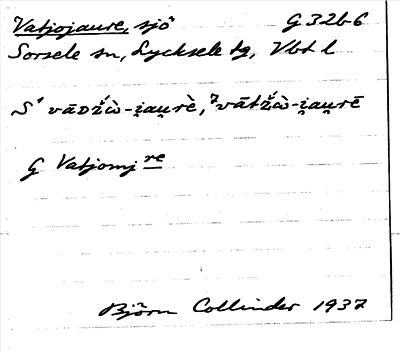 Vatjojaure, sjö G 32b6
Sorsele sn, Lycksele tg, Vbt l
S' vāᴅž́ὼ-i̯au̯rè, ⁷vātž́ὼ-i̯au̯rē
G Vatjomj re
Björn Collinder 1937